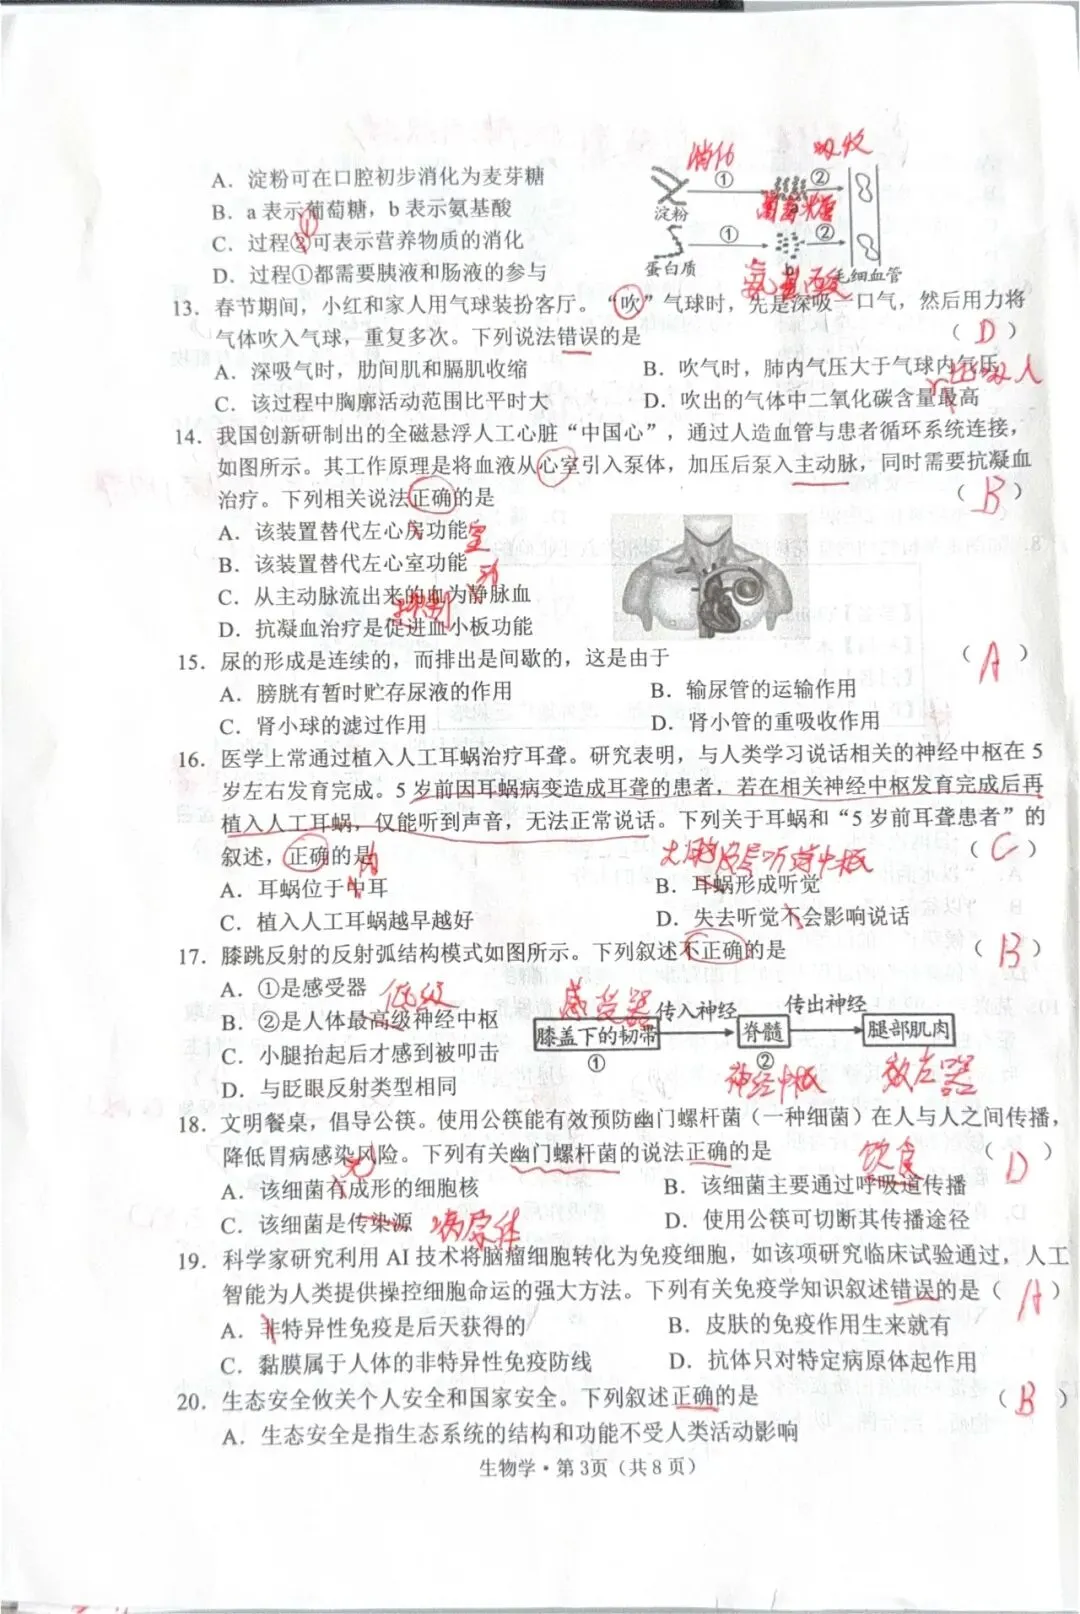 A. 淀粉可在口腔初步消化为麦芽糖
B. a表示葡萄糖，b表示氨基酸
C. 过程②可表示营养物质的消化
D. 过程①都需要胰液和肠液的参与
消化 吸收
① ②
淀粉 葡萄糖
① ②
蛋白质 氨基酸 毛细血管
13. 春节期间，小红和家人用气球装扮客厅。“吹”气球时，先是深吸一口气，然后用力将
气体吹入气球，重复多次。下列说法错误的是 （ D ）
A. 深吸气时，肋间肌和膈肌收缩 B. 吹气时，肺内气压大于气球内气压
C. 该过程中胸廓活动范围比平时大 D. 吹出的气体中二氧化碳含量最高
比吸入
14. 我国创新研制出的全磁悬浮人工心脏“中国心”，通过人造血管与患者循环系统连接，
如图所示。其工作原理是将血液从心室引入泵体，加压后泵入主动脉，同时需要抗凝血
治疗。下列相关说法正确的是 （ B ）
A. 该装置替代左心房功能 室
B. 该装置替代左心室功能
动
C. 从主动脉流出来的血为静脉血
抑制
D. 抗凝血治疗是促进血小板功能
15. 尿的形成是连续的，而排出是间歇的，这是由于 （ A ）
A. 膀胱有暂时贮存尿液的作用 B. 输尿管的运输作用
C. 肾小球的滤过作用 D. 肾小管的重吸收作用
16. 医学上常通过植入人工耳蜗治疗耳聋。研究表明，与人类学习说话相关的神经中枢在 5
岁左右发育完成。5 岁前因耳蜗病变造成耳聋的患者，若在相关神经中枢发育完成后再
植入人工耳蜗，仅能听到声音，无法正常说话。下列关于耳蜗和“5 岁前耳聋患者”的
叙述，正确的是 （ C ）
内 大脑皮层听觉中枢
A. 耳蜗位于中耳 B. 耳蜗形成听觉
C. 植入人工耳蜗越早越好 D. 失去听觉不会影响说话
17. 膝跳反射的反射弧结构模式如图所示。下列叙述不正确的是 （ B ）
A. ①是感受器 低级
B. ②是人体最高级神经中枢
C. 小腿抬起后才感到被叩击
D. 与眨眼反射类型相同
感受器 传入神经 传出神经
膝盖下的韧带 脊髓 腿部肌肉
① ②
神经中枢 效应器
18. 文明餐桌，倡导公筷。使用公筷能有效预防幽门螺杆菌（一种细菌）在人与人之间传播，
降低胃病感染风险。下列有关幽门螺杆菌的说法正确的是 （ D ）
无 饮食
A. 该细菌有成形的细胞核 B. 该细菌主要通过呼吸道传播
C. 该细菌是传染源 病原体 D. 使用公筷可切断其传播途径
19. 科学家研究利用 AI 技术将脑瘤细胞转化为免疫细胞，如该项研究临床试验通过，人工
智能为人类提供操控细胞命运的强大方法。下列有关免疫学知识叙述错误的是（ A ）
A. 非特异性免疫是后天获得的 B. 皮肤的免疫作用生来就有
C. 黏膜属于人体的非特异性免疫防线 D. 抗体只对特定病原体起作用
20. 生态安全攸关个人安全和国家安全。下列叙述正确的是 （ B ）
A. 生态安全是指生态系统的结构和功能不受人类活动影响
生物学·第3页（共8页）